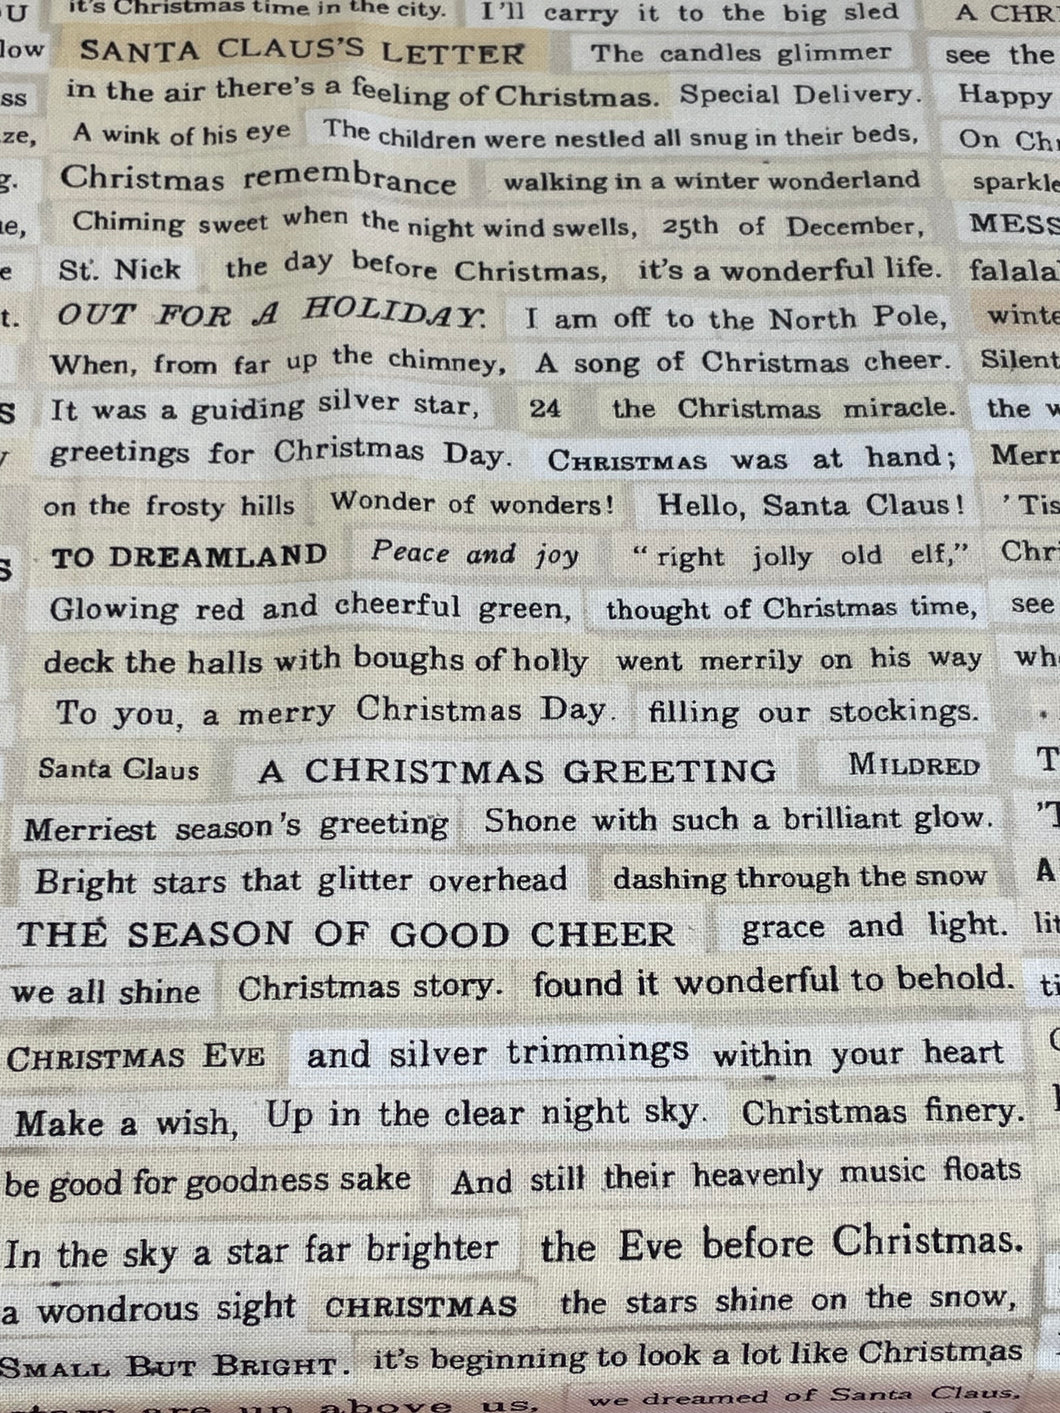 U it's Christmas time in the city. I'll carry it to the big sled A CHR
low SANTA CLAUS'S LETTER The candles glimmer see the
ss in the air there's a feeling of Christmas. Special Delivery. Happy
ze, A wink of his eye The children were nestled all snug in their beds, On Ch
g. Christmas remembrance walking in a winter wonderland sparkle
ue, Chiming sweet when the night wind swells, 25th of December, MESS
e St. Nick the day before Christmas, it's a wonderful life. falala
t. OUT FOR A HOLIDAY. I am off to the North Pole, winte
When, from far up the chimney, A song of Christmas cheer. Silent
S It was a guiding silver star, 24 the Christmas miracle. the w
y greetings for Christmas Day. CHRISTMAS was at hand; Merr
on the frosty hills Wonder of wonders! Hello, Santa Claus! 'Tis
S TO DREAMLAND Peace and joy “right jolly old elf,” Chri
Glowing red and cheerful green, thought of Christmas time, see
deck the halls with boughs of holly went merrily on his way wh
To you, a merry Christmas Day. filling our stockings. .
Santa Claus A CHRISTMAS GREETING MILDRED T
Merriest season's greeting Shone with such a brilliant glow. 'T
Bright stars that glitter overhead dashing through the snow A
THE SEASON OF GOOD CHEER grace and light. lit
we all shine Christmas story. found it wonderful to behold. ti
CHRISTMAS EVE and silver trimmings within your heart
Make a wish, Up in the clear night sky. Christmas finery.
be good for goodness sake And still their heavenly music floats
In the sky a star far brighter the Eve before Christmas.
a wondrous sight CHRISTMAS the stars shine on the snow,
SMALL BUT BRIGHT. it's beginning to look a lot like Christmas
are up above us. we dreamed of Santa Claus.